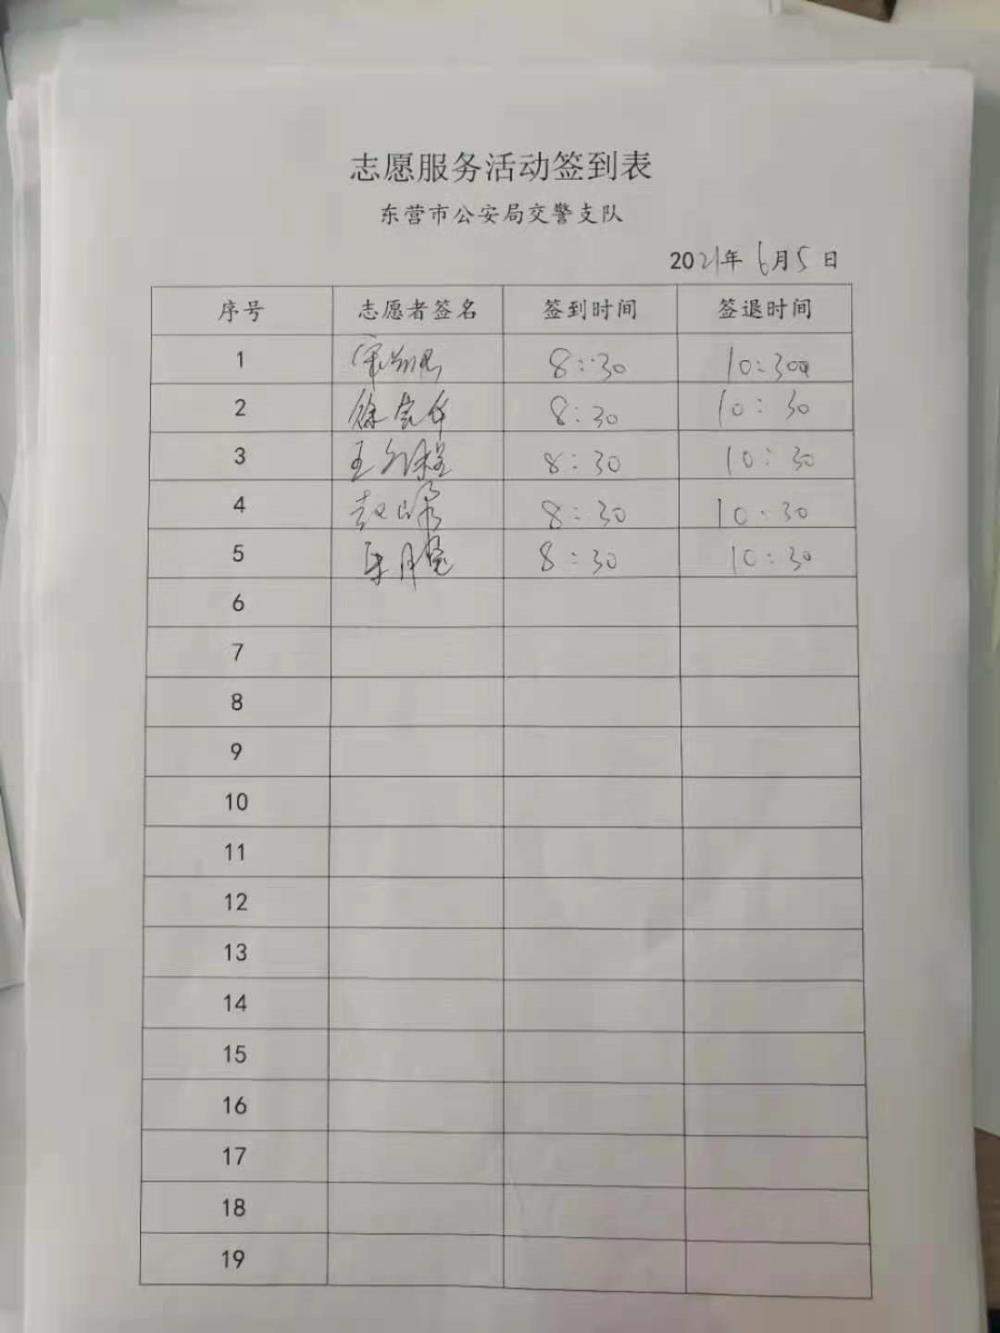 志愿服务活动签到表
东营市公安局交警支队
2021年 6月5日
序号 志愿者签名 签到时间 签退时间
1 8:30 10:30
2 徐 8:30 10:30
3 王 8:30 10:30
4 赵 8:30 10:30
5 8:30 10:30
6
7
8
9
10
11
12
13
14
15
16
17
18
19